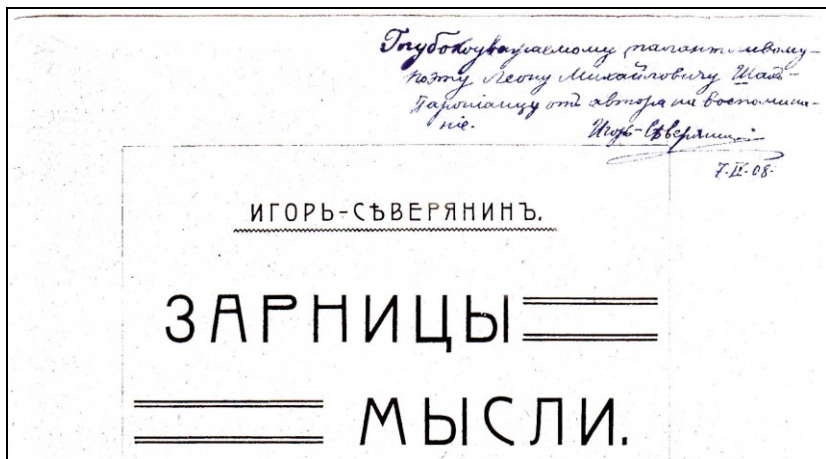 Глубокоуважаемому талантливому
поэту Леону Михайловичу Шах-
Паронiанцу отъ автора на воспомина-
нiе.
Игорь-Сѣверянинъ
7.IX.08.
ИГОРЬ-СѢВЕРЯНИНЪ.
ЗАРНИЦЫ
МЫСЛИ.